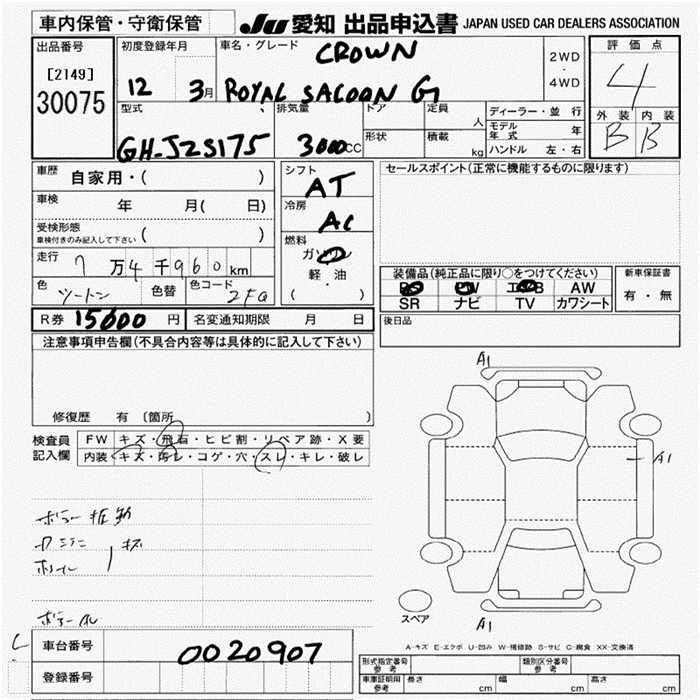 車内保管・守衛保管
JU 愛知 出品申込書 JAPAN USED CAR DEALERS ASSOCIATION
出品番号
[2149]
30075
初度登録年月
12 3月
車名・グレード
CROWN
ROYAL SALOON G
2WD
・
4WD
評価点
4
外装 内装
B B
型式
GH-JZS175
排気量
3000CC
ドア
形状
定員 人
積載 kg
ディーラー・並行
モデル年式 年
ハンドル 左・右
車歴 自家用・( )
車検 年 月( 日)
受検形態
車検付きのみ記入して下さい ( )
走行 7万4千960km
色 ツートン 色替 色コード 2FG
シフト
AT
冷房
AC
燃料
ガソリン
軽・油
( )
セールスポイント(正常に機能するものに限ります)
装備品(純正品に限り○をつけてください)
PS PW エアB AW
SR ナビ TV カワシート
新車保証書
有・無
R券 15600円
名変通知期限 月 日
後日品
注意事項申告欄(不具合内容等は具体的に記入して下さい)
修復歴 有 〔箇所 〕
検査員
記入欄
FW キズ・飛石・ヒビ割・リペア跡・X要
内装 キズ・汚レ・コゲ・穴・スレ・キレ・破レ
A1
A1
A1
スペア
A-キズ E-エクボ U-凹み W-補修跡 S-サビ C-腐食 XX-交換済
車台番号 0020907
登録番号
型式指定番号 参考
類別区分番号 参考
車庫証明用 参考
長さ cm
幅 cm
高さ cm